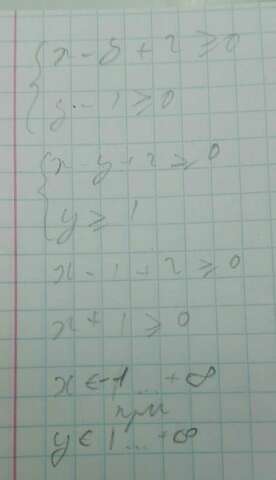 x - y + 2 ≥ 0
y - 1 ≥ 0
x - y + 2 ≥ 0
y ≥ 1
x - 1 + 2 ≥ 0
x + 1 ≥ 0
x ∈ -1 ... +∞
при
y ∈ 1 ... +∞